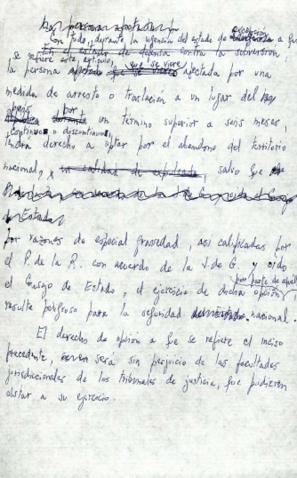 Las personas afectadas por
Con todo, durante la vigencia del estado de excepción a que
En el estado de defensa contra la subversión
se refiere este artículo,
la persona que se viere afectada por una
medida de arresto o traslación a un lugar del
país por un término superior a seis meses,
continuos o discontinuos,
tendrá derecho a optar por el abandono del territorio
nacional, en calidad de expulsado, salvo que
de Estado
por razones de especial gravedad, así calificadas por
el P. de la R. con acuerdo de la J. de G. y oído
el Consejo de Estado, el ejercicio de dicha opción por parte de aquel
resulte peligroso para la seguridad nacional.
El derecho de opción a que se refiere el inciso
precedente, será sin perjuicio de las facultades
jurisdiccionales de los tribunales de justicia, que pudieren
obstar a su ejercicio.